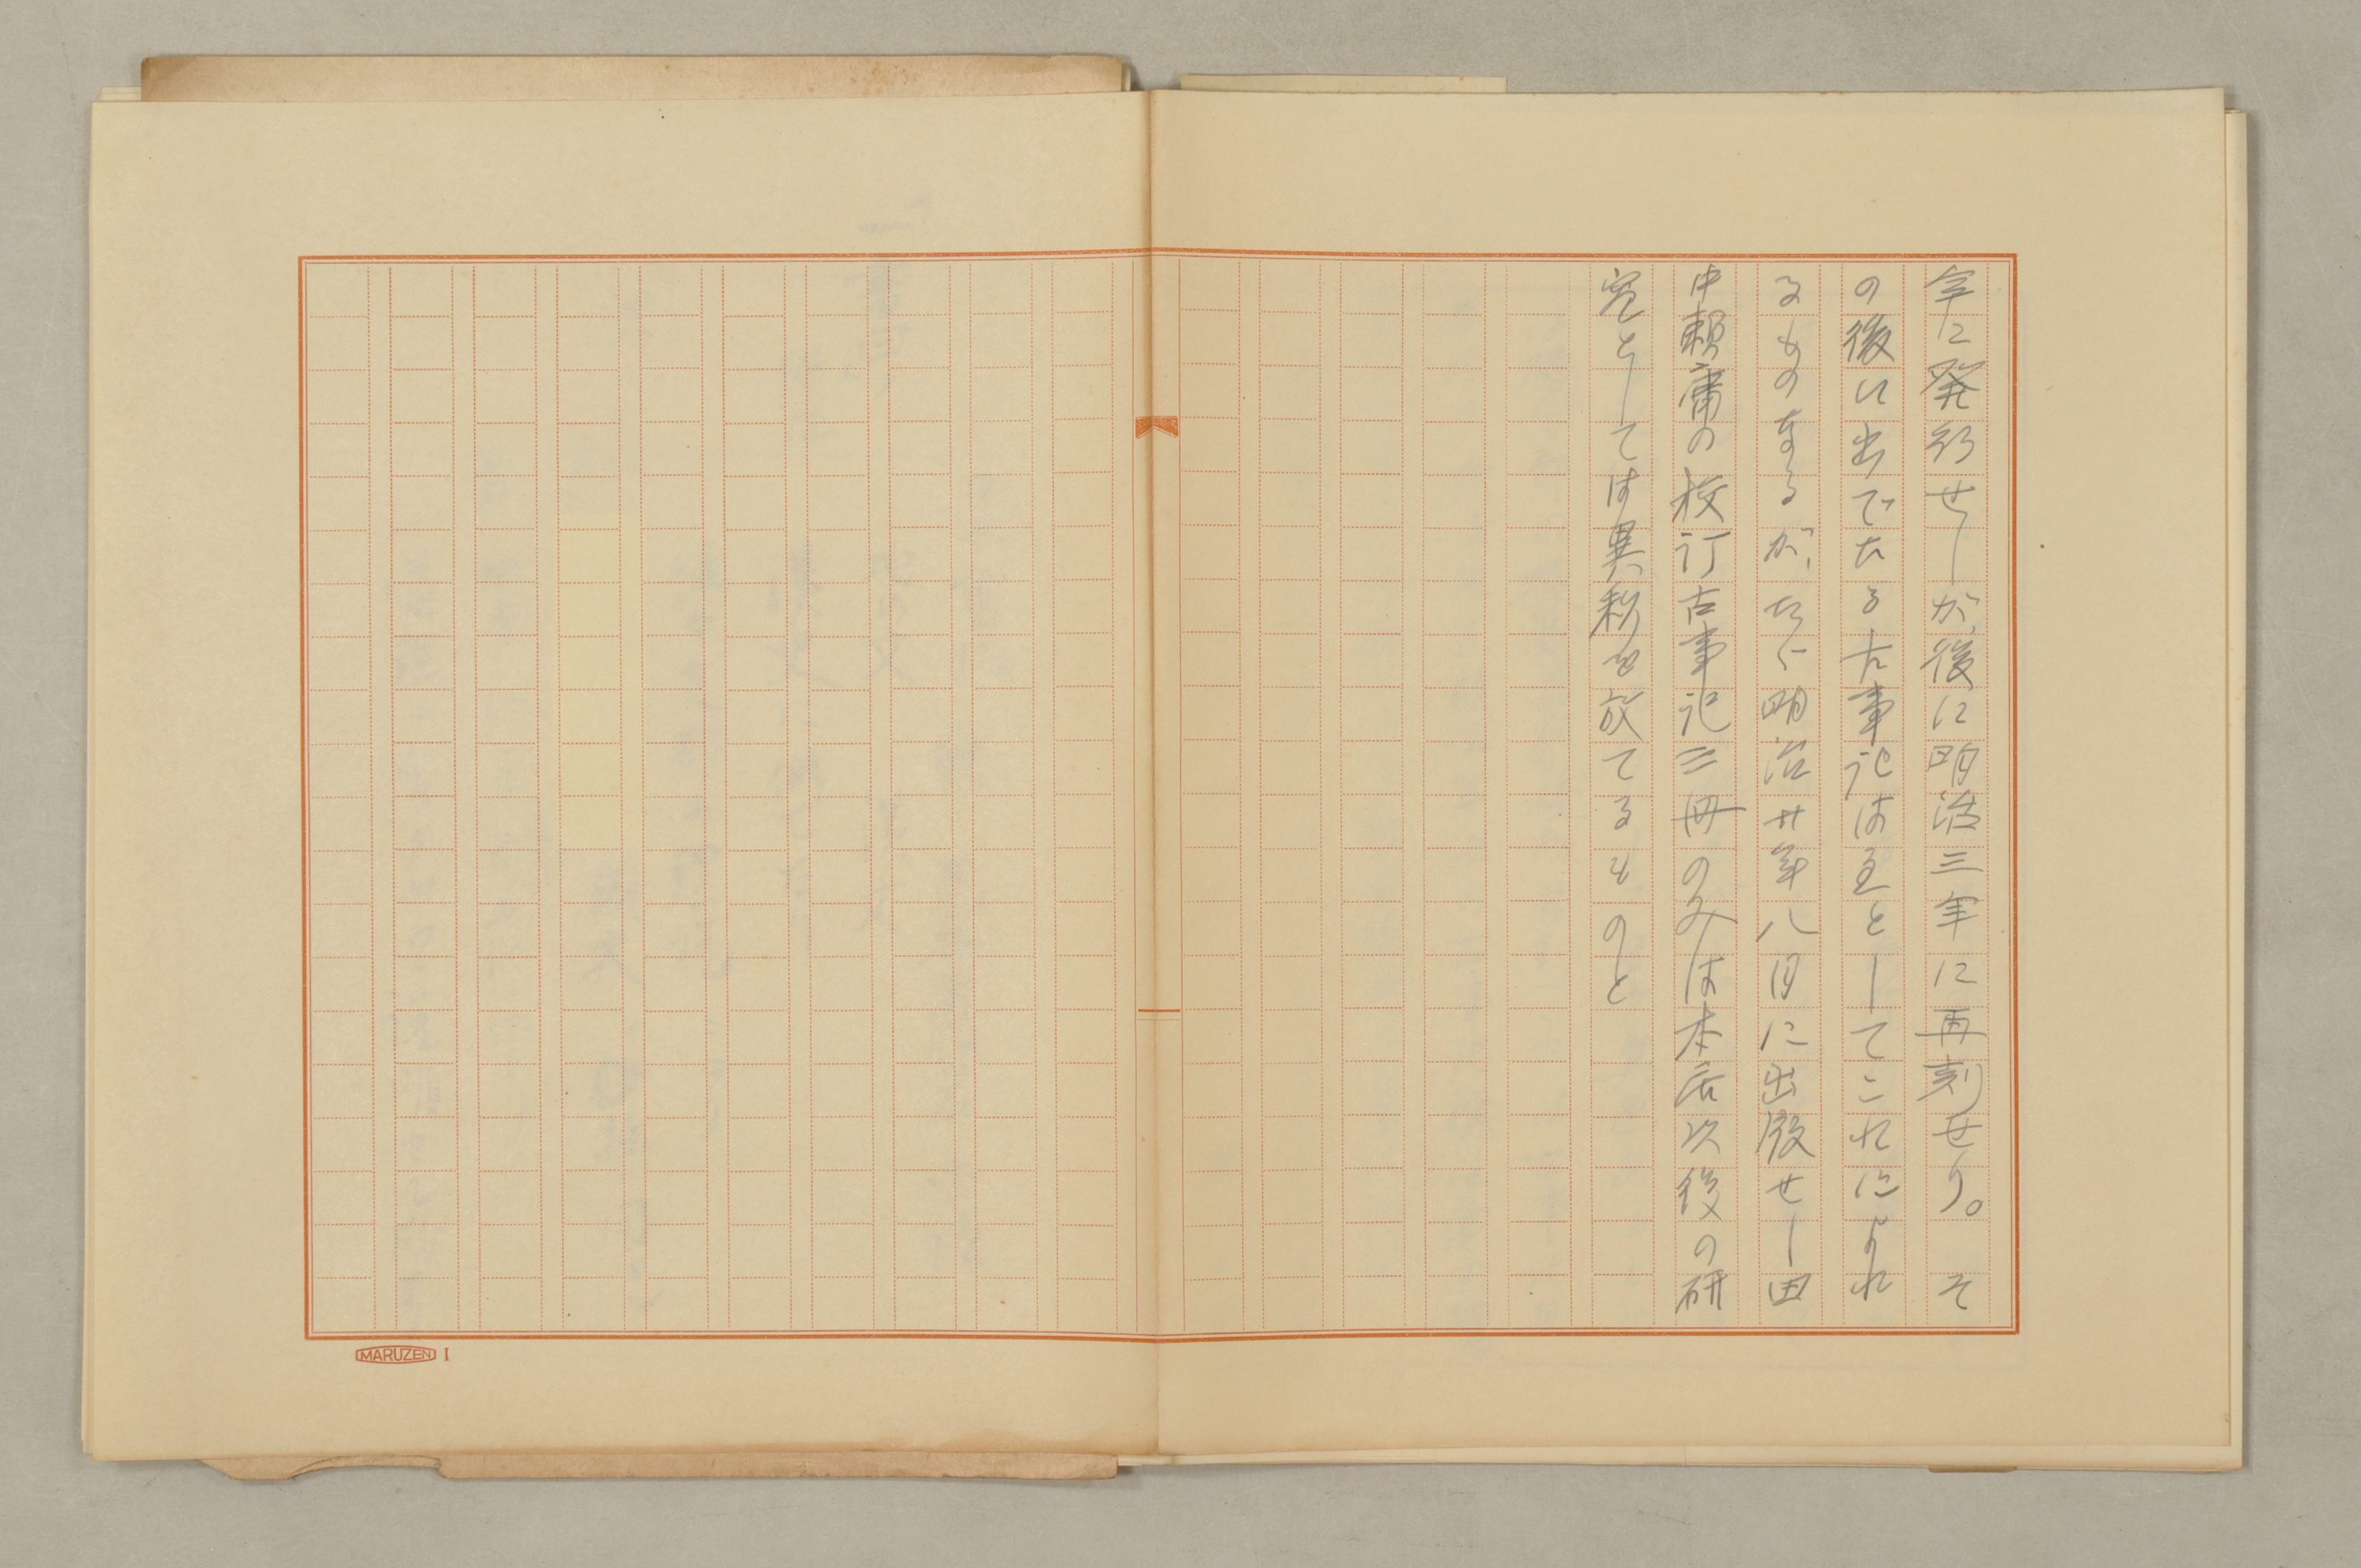 年に発行せしが、後に明治三年に再刻せり。そ
の後に出でたる古事記は主としてこれによれ
るものなるが、たゞ明治廿年八月に出版せし田
中頼庸の校訂古事記三冊のみは本居以後の研
究としては異彩を放てるものと
MARUZEN I